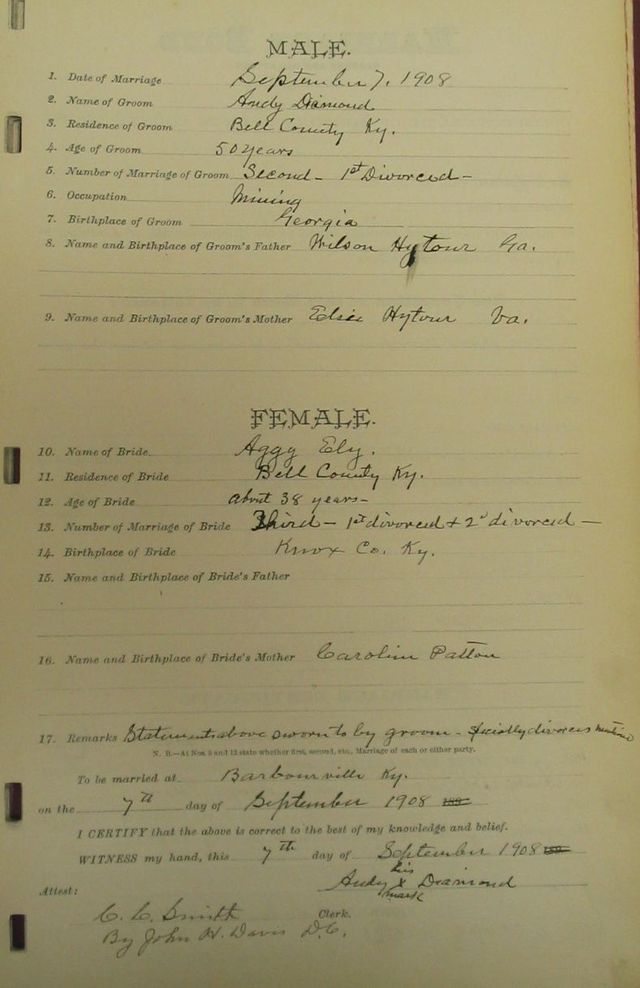 MALE.
1. Date of Marriage September 7, 1908
2. Name of Groom Andy Diamond
3. Residence of Groom Bell County Ky.
4. Age of Groom 50 years
5. Number of Marriage of Groom Second - 1st Divorced -
6. Occupation Mining
7. Birthplace of Groom Georgia
8. Name and Birthplace of Groom's Father Wilson Hytour Ga.
9. Name and Birthplace of Groom's Mother Elsie Hytour Va.
FEMALE.
10. Name of Bride. Aggy Ely.
11. Residence of Bride Bell County Ky.
12. Age of Bride about 38 years -
13. Number of Marriage of Bride Third - 1st divorced + 2d divorced -
14. Birthplace of Bride Knox Co. Ky.
15. Name and Birthplace of Bride's Father
16. Name and Birthplace of Bride's Mother Carolin Patton
17. Remarks Statements above sworn to by groom - divorces
N. B.—At Nos. 5 and 13 state whether first, second, etc., Marriage of each or either party.
To be married at Barbourville Ky.
on the 7th day of September 1908 189
I CERTIFY that the above is correct to the best of my knowledge and belief.
WITNESS my hand, this 7th day of September 1908 189
his
Andy X Diamond
mark
Attest:
C. C. Smith Clerk.
By John H. Davis D.C.